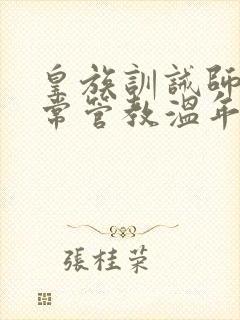 皇族訓誡師
常管教溫年
張桂榮